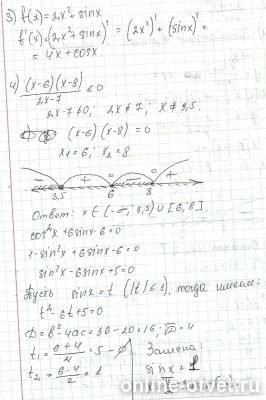 3) f(x) = 2x² + sinx
f'(x) = (2x² + sinx)' = (2x²)' + (sinx)' =
= 4x + cosx
4) (x-6)(x-8) / 2x-7 ≤ 0
2x-7≠0; 2x≠7; x≠3,5.
(x-6)(x-8) = 0
x₁ = 6; x₂ = 8.
- + - +
3,5 6 8
Ответ: x ∈ (-∞; 3,5) ∪ [6; 8]
cos²x + 6sinx - 6 = 0
1 - sin²x + 6sinx - 6 = 0
sin²x - 6sinx + 5 = 0
Пусть sinx = t (|t| ≤ 1), тогда имеем:
t² - 6t + 5 = 0
D = b² - 4ac = 36 - 20 = 16; √D = 4
t₁ = 6+4/2 = 5 - ∅
t₂ = 6-4/2 = 1
Замена:
sinx = 1
online-otvet.ru